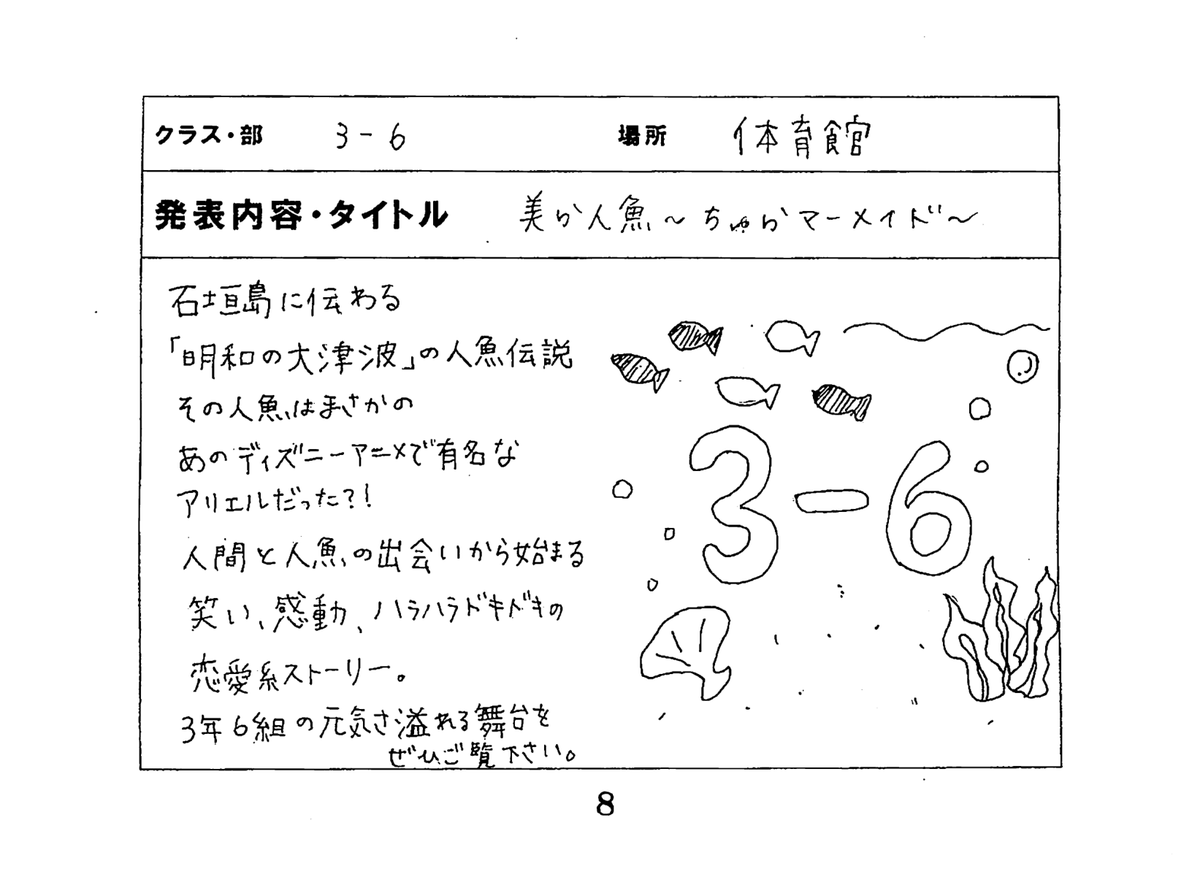 クラス・部 3-6 場所 体育館
発表内容・タイトル 美か人魚～ちゅらマーメイド～
石垣島に伝わる
「明和の大津波」の人魚伝説
その人魚はまさかの
あのディズニーアニメで有名な
アリエルだった?!
人間と人魚の出会いから始まる
笑い、感動、ハラハラドキドキの
恋愛系ストーリー。
3年6組の元気さ溢れる舞台を
ぜひご覧下さい。
3-6
8